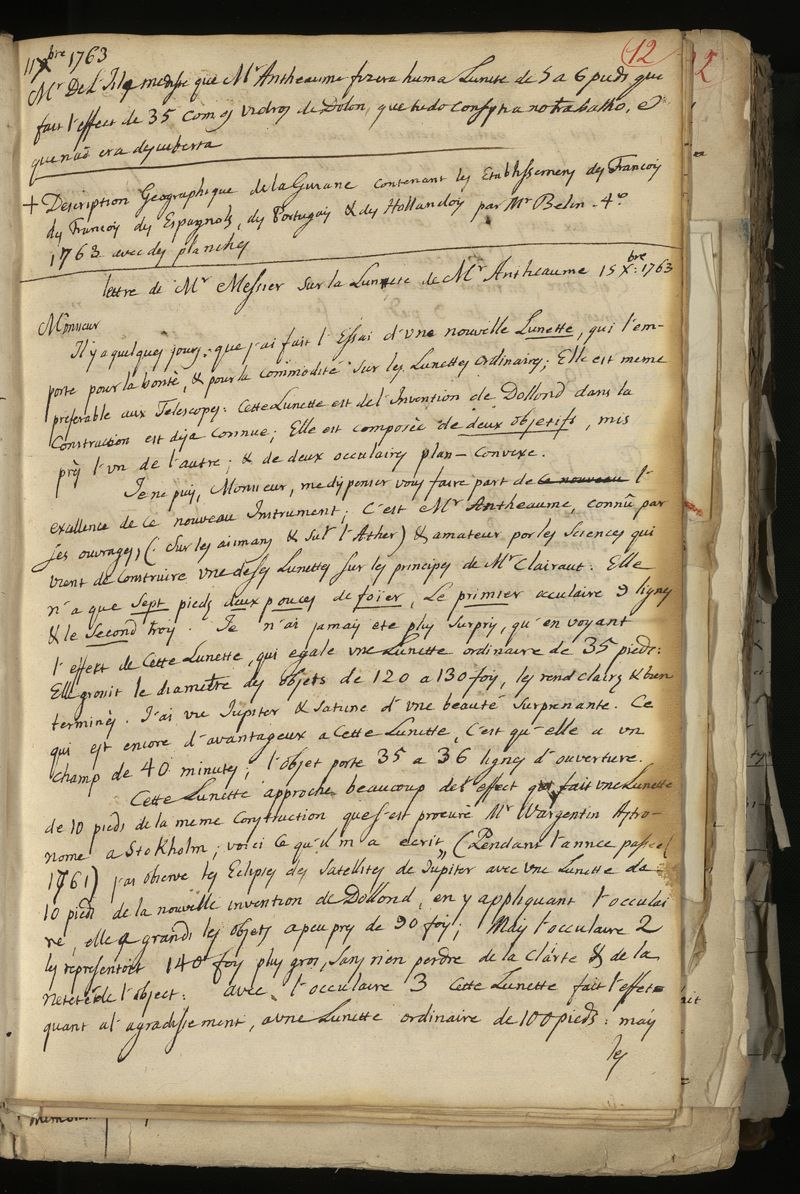 12
11 Xbre 1763
Mr De L'Isle me disse que Mr Antheaume fizera huma Lunete de 5 a 6 pieds que
fait l'effect de 35 com os vidros de Dolon, que tudo consistia no trabalho, e
que não era descuberta
+ Description Geographique de la Guiane contenant les Etablissemens des Francois
des Francois des Espagnols, des Portugais & des Hollandois par Mr Belin. 4to
1763 avec des planches
lettre de Mr Messier sur la Lunete de Mr Antheaume 15 Xbre: 1763
Monsieur
Il y a quelques jours, que j'ai fait l'Essai d'une nouvelle Lunette, qui l'em-
porte pour la bonté, & pour la commodité sur les Lunettes ordinaires; Elle est meme
preferable aux Telescopes: Cette Lunette est de l'Invention de Dollond dans la
Construction est deja connue; Elle est composée de deux objetifs, mis
près l'un de l'autre; & de deux occulaires plan-convexe.
Je ne puis, Monsieur, me dispenser vous faire part de ce nouveau l'
exellence de ce nouveau Instrument; c'est Mr Antheaume, connû par
ses ouvrages, (: sur les aimans & sur l'Ather) & amateur por les Sciences qui
vient de construire une de ses Lunettes sur les principes de Mr Clairaut: Elle
n'a que sept pieds deux pouces de foïer, Le premier occulaire 9 lignes
& le Second trois. Je n'ai jamais eté plus surpris, qu'en voyant
l'effect de Cette Lunette, qui egale une Lunette ordinaire de 35 pieds:
Elle grosit le diametre des objets de 120 a 130 fois, les rend clairs & bien
terminés. J'ai vu Jupiter & Saturne d'une beauté surprenante. Ce
qui est encore d'avantageux a Cette Lunette, C'est qu'elle a un
champ de 40 minutes; l'objet porte 35 a 36 lignes d'ouverture.
Cette Lunette approche beaucoup de l'effect que fait une Lunette
de 10 pieds de la meme Construction que s'est procuré Mr Wargentin Astro-
nome a Stokholm; voici ce qu'il m'a ecrit „ (Pendant l'année passée (
1761) j'ai observé les Eclipses des Satellites de Jupiter avec une Lunette de
10 pieds de la nouvelle invention de Dollond, en y appliquant l'occulai
re, elle a grandi les objets a peu pres de 90 fois; Mais l'occulaire 2
les representoit 140 fois plus gros, sans rien perdre de la clarte & de la
neteté de l'object: avec l'occulaire 3 cette Lunette fait l'effet
quant a l'agradissement, a une Lunette ordinaire de 100 pieds: mais
les